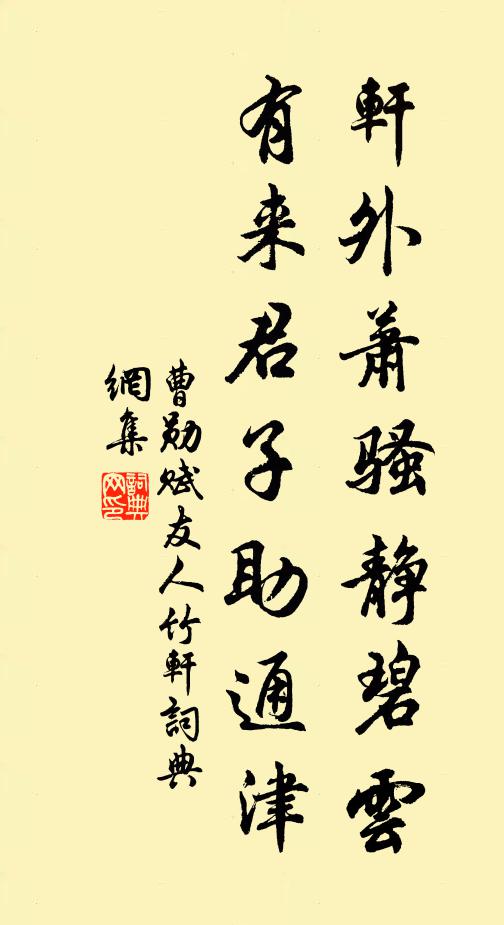 軒外蕭騷静碧雲
有来君子助通津
曹勛賦友人竹軒詞典
網集
詞典網印